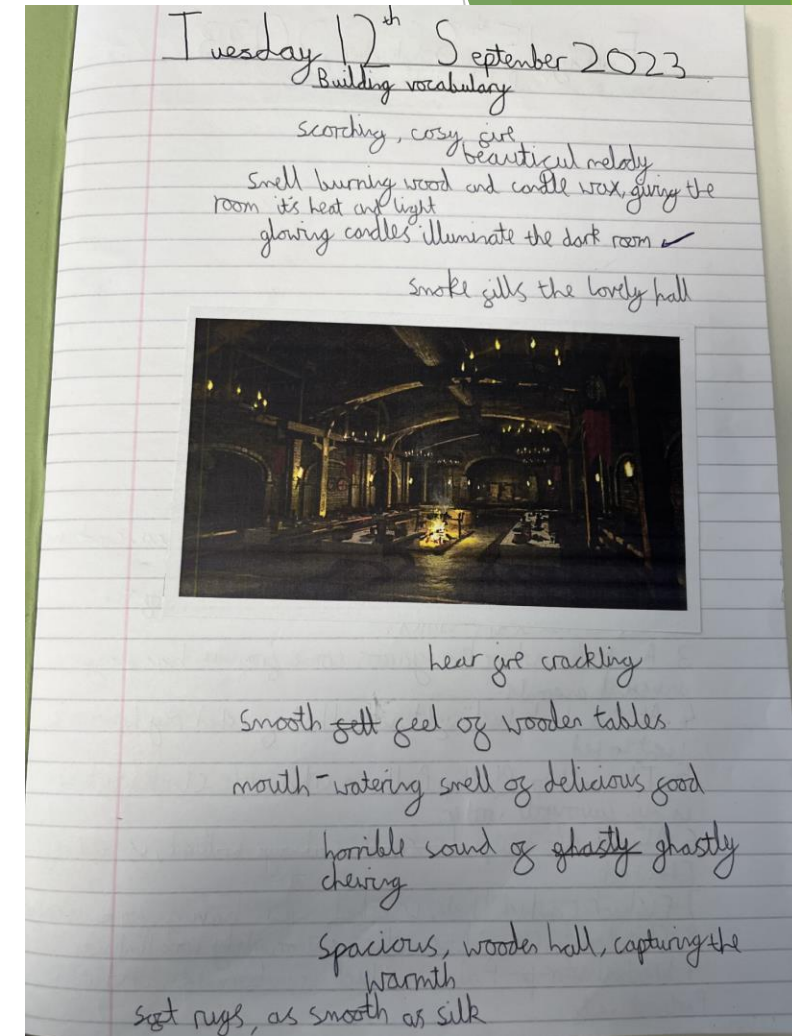 Tuesday 12th September 2023
Building vocabulary
scorching, cosy fire
beautiful melody
Smell burning wood and candle wax, giving the
room it's heat and light
glowing candles illuminate the dark room ✓
smoke fills the lovely hall
hear fire crackling
Smooth felt feel of wooden tables
mouth-watering smell of delicious food
horrible sound of ghastly ghastly
chewing
Spacious, wooden hall, capturing the
warmth
soft rugs, as smooth as silk